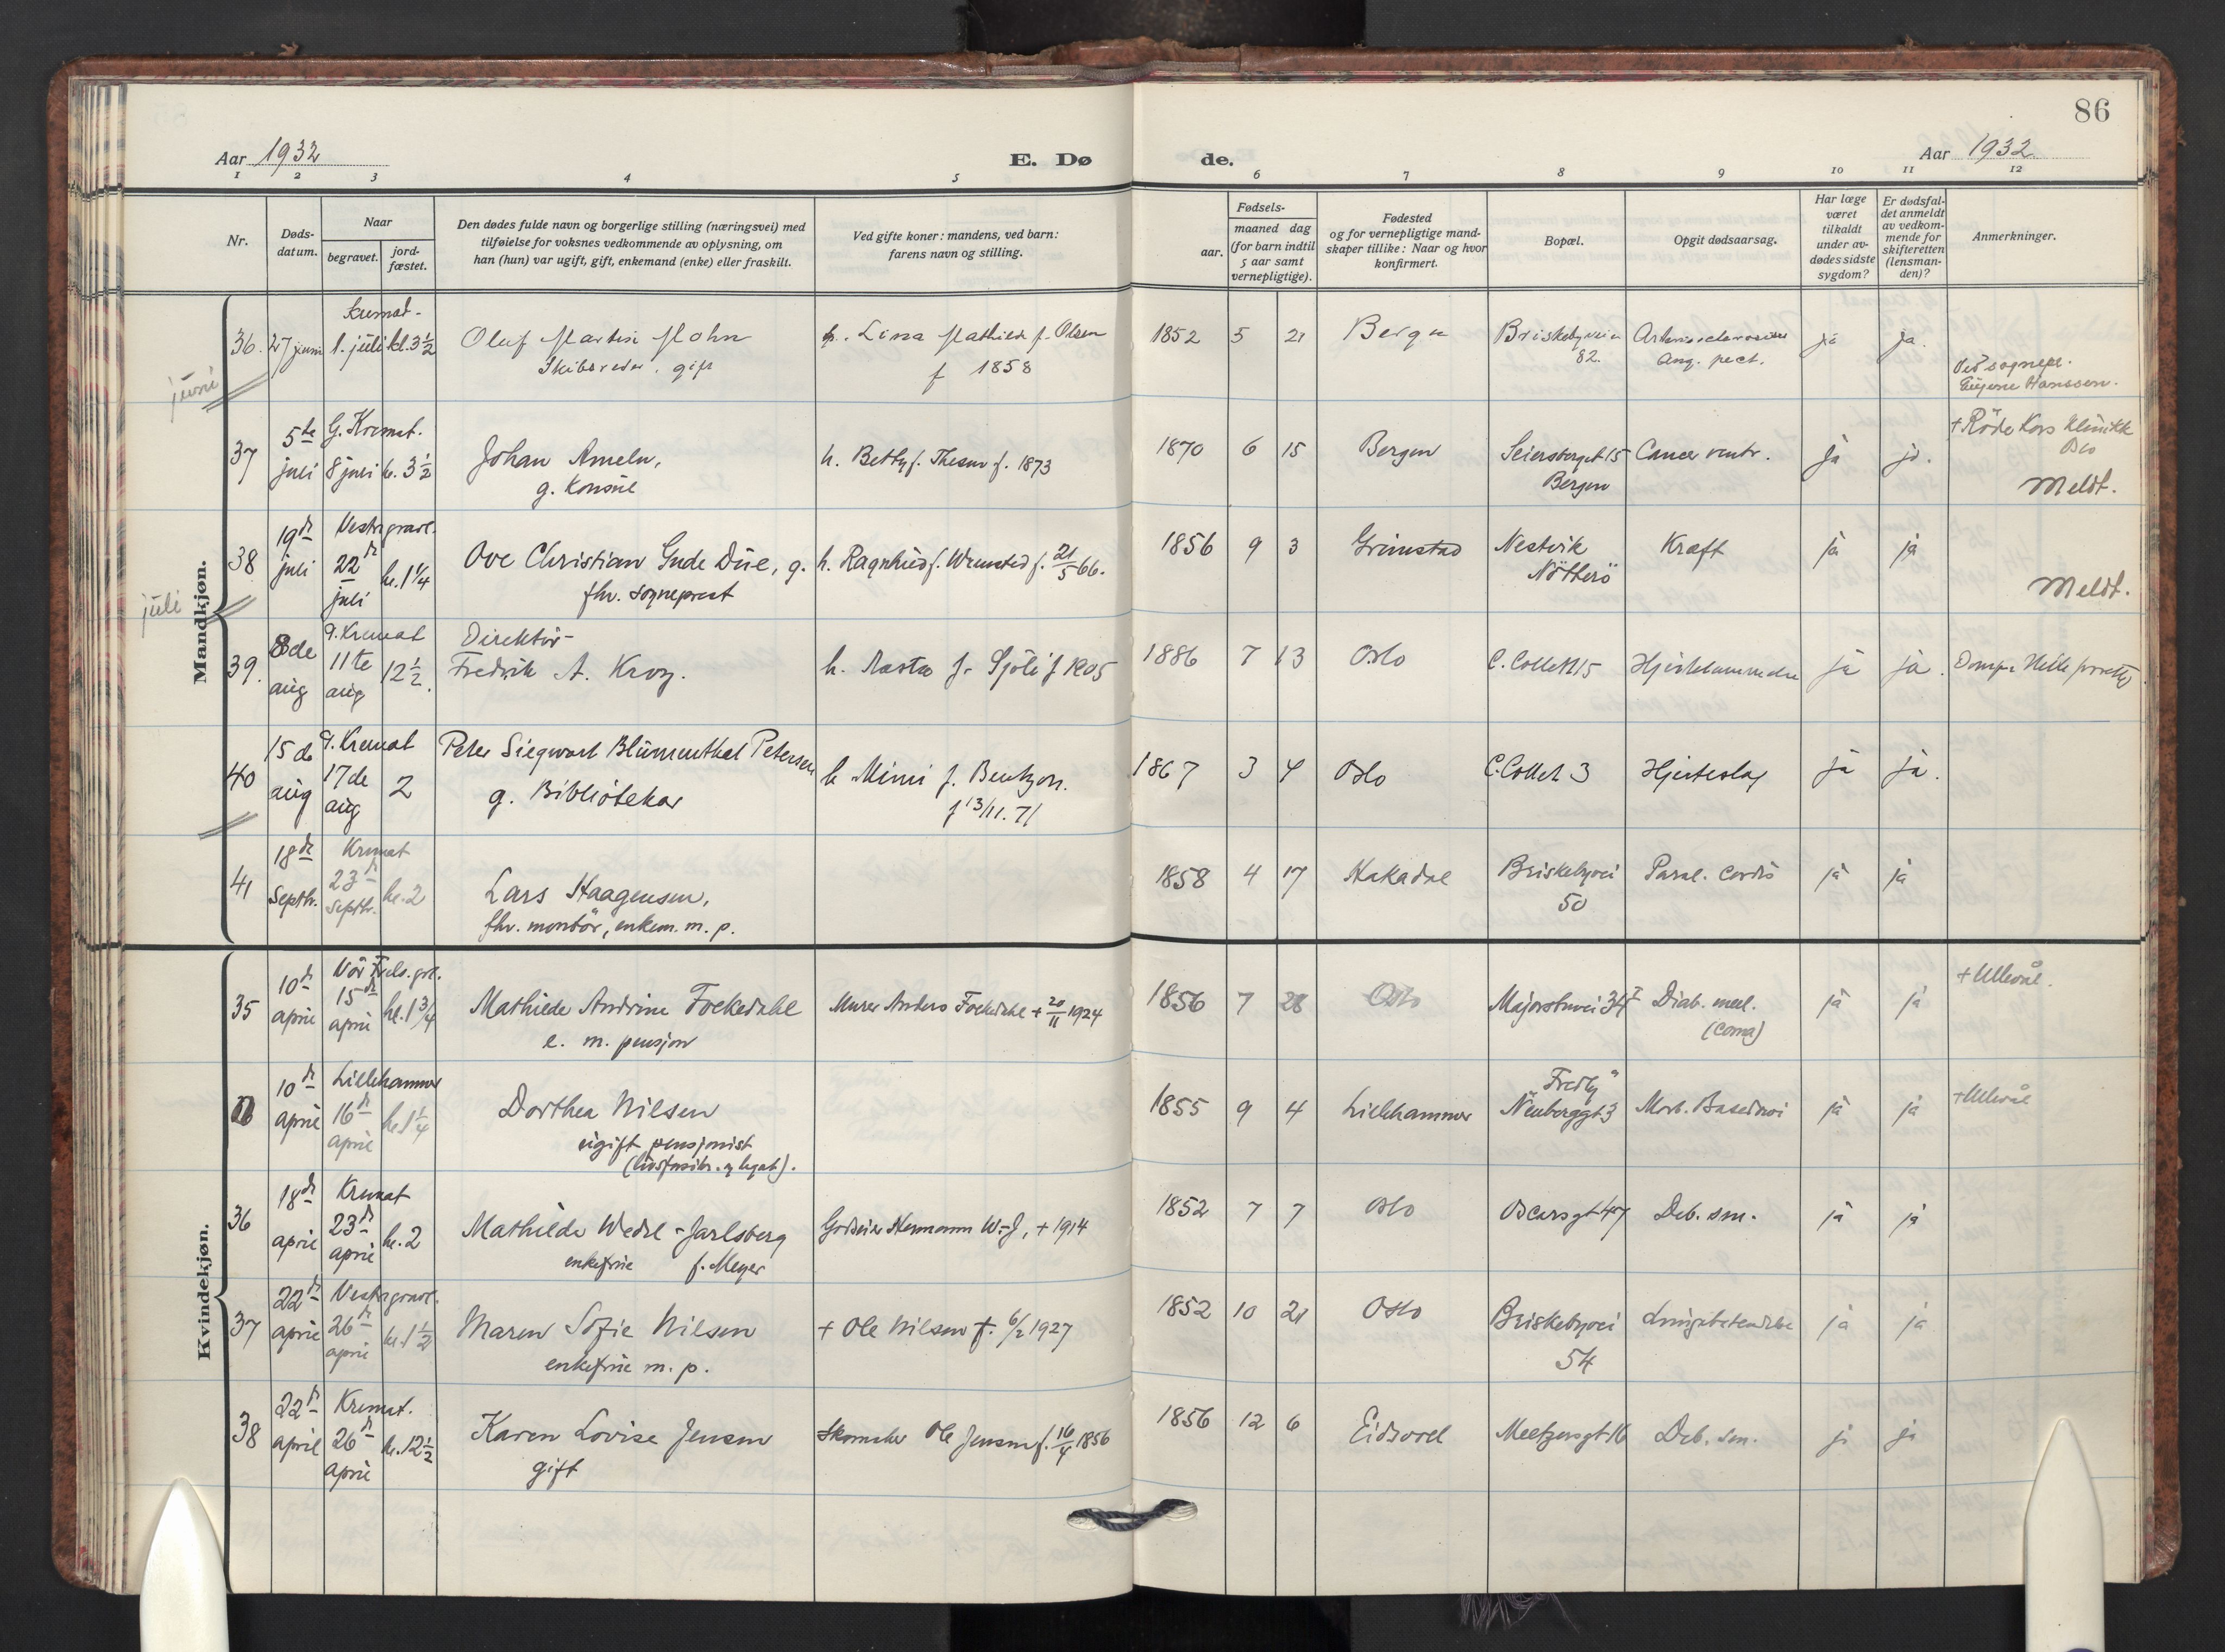 86
Aar 1932
E. Dø
de.
Aar 1932
1 2 3 4 5 6 7 8 9 10 11 12
Nr.
Døds-
datum.
Naar
begravet.
jord-
fæstet.
Den dødes fulde navn og borgerlige stilling (næringsvei) med
tilføielse for voksnes vedkommende av oplysning, om
han (hun) var ugift, gift, enkemand (enke) eller fraskilt.
Ved gifte koner: mandens, ved barn:
farens navn og stilling.
Fødsels-
aar.
maaned dag
(for barn indtil
5 aar samt
vernepligtige).
Fødested
og for vernepligtige mand-
skaper tillike: Naar og hvor
konfirmert.
Bopæl.
Opgit dødsaarsag.
Har læge
været
tilkaldt
under av-
dødes sidste
sygdom?
Er dødsfal-
det anmeldt
av vedkom-
mende for
skifteretten
(lensman-
den)?
Anmerkninger.
Mandkjøn.
Kremat-
36. 27 juni 1. juli kl. 3 1/2 Oluf Martin Mohn h. Lina Mathilde f. Olsen 1852 5 21 Bergen Briskebyveien Arteriosclerosis ja ja.
Skibsreder. gift f 1858 82. Ang. pect. Ved sognepr.
Eugene Hanssen.
juni
5te G. Kremat. + Røde Kors Klinikk
Oslo
37 juli 8 juli kl. 3 1/2 Johan Ameln, h. Betty f. Thesen f. 1873 1870 6 15 Bergen Seiersbergt 15 Cancer ventr. ja ja.
g. Konsul Bergen Meldt.
19de Vestre gravl.
38 juli 22de juli kl. 1 1/4 Ove Christian Gude Due, g. h. Ragnhild f. Wremsted f. 21/5 66. 1856 9 3 Grimstad Nestvik Kraft ja ja
fhv. sogneprest Nøtterø Meldt.
juli
8de g. Kremat Direktør
39. aug 11te aug 12 1/2. Fredrik A. Krog. h. Aasta f. Sjøli f 1905 1886 7 13 Oslo C. Collett 15 Hjertelammelse ja ja.
15de g. Kremat Peter Siegwart Blumenthal Petersen
40 aug 17de aug 2 g. Bibliotekar h Mimi f. Bentzon. 1867 3 4 Oslo C. Collett 3 Hjerteslag ja ja.
f 13/11. 71
18de Kremat
41 Septbr. 23de septbr. kl. 2 Lars Haagensen, 1858 4 17 Hakadal Briskebyvei Paral. cordis ja ja
fhv. montør, enkem. m. p. 50
Kvindekjøn.
10de Vår Frels. grl. + Ullevål.
35 april 15de april kl. 1 3/4 Mathilde Andrine Fockedahl Murer Anders Fockdahl + 20/11 1924 1856 7 28 Oslo Majorstuvei 34 Diab. mell. ja ja
e. m. pensjon (coma)
10de Lillehammer Fredly
april 16de april kl 1 1/4 Dorthea Nilsen 1855 9 4 Lillehammer Neuberggt 3 Morb. Basedowi ja ja + Ullevål
ugift pensjonist
18de Kremat
36 april 23de april kl. 2 Mathilde Wedel-Jarlsberg Godseier Hermann W.-J, + 1914 1852 7 7 Oslo Oscarsgt 47 Deb. sen. ja ja
enkefrue f. Meyer
22de Vestre gravl.
37 april 26de april kl. 1 1/2 Maren Sofie Nilsen + Ole Nilsen f. 6/2 1927 1852 10 21 Oslo Briskebyvei Lungebetendelse ja ja
enkefrue m. p. 54
22de Kremat.
38 april 26de april kl. 12 1/2 Karen Lovise Jensen Skomaker Ole Jensen f. 16/4 1856 1856 12 6 Eidsvoll Meltzersgt 16 Deb. sen. ja ja
gift